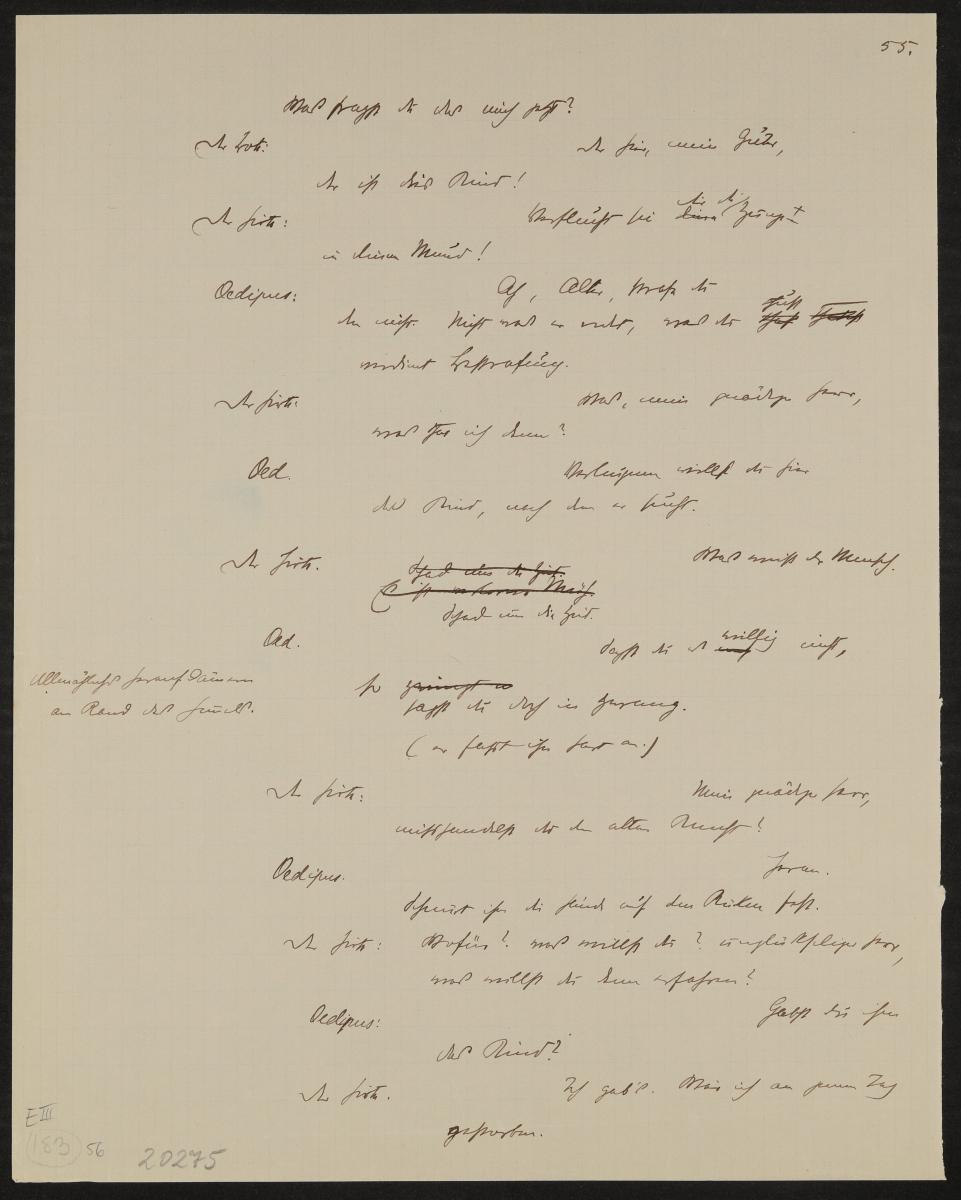 55.
Was fragst du das mich jetzt?
Der Bote:
Der hier, mein Guter,
der ist dies Kind!
Der Hirte:
Verflucht sei dir die Zunge
in deinem Mund!
Oedipus:
Ach, Alter, strafe du
den nicht. Nicht was er redet, was du thust
verdient Bestrafung.
Der Hirte:
Was, mein gnädiger Herr,
was thu ich denn?
Oed.
Verleugnen willst du hier
das Kind, nach dem er sucht.
Der Hirte.
Schad um die Zeit.
Was weiß der Mensch.
Es ist verlorne Müh.
Schad um die Zeit.
Oed.
Sagst du es willig nicht,
Allmähliches heraufdämmern
am Rand des Himmels.
so
sagst du doch im Zwang.
(er faßt ihn hart an.)
Der Hirte:
Mein gnädiger Herr,
misshandelst du den alten Knecht?
Oedipus.
Heran.
Schnürt ihm die Hände auf dem Rücken fest.
Der Hirte: Wofür? was willst du? unglückseliger Herr,
was willst du denn erfahren?
Oedipus:
Gabst du ihm
das Kind?
Der Hirte.
Ich gab's. Wär ich an jenem Tag
gestorben.
E III
183 56
20275